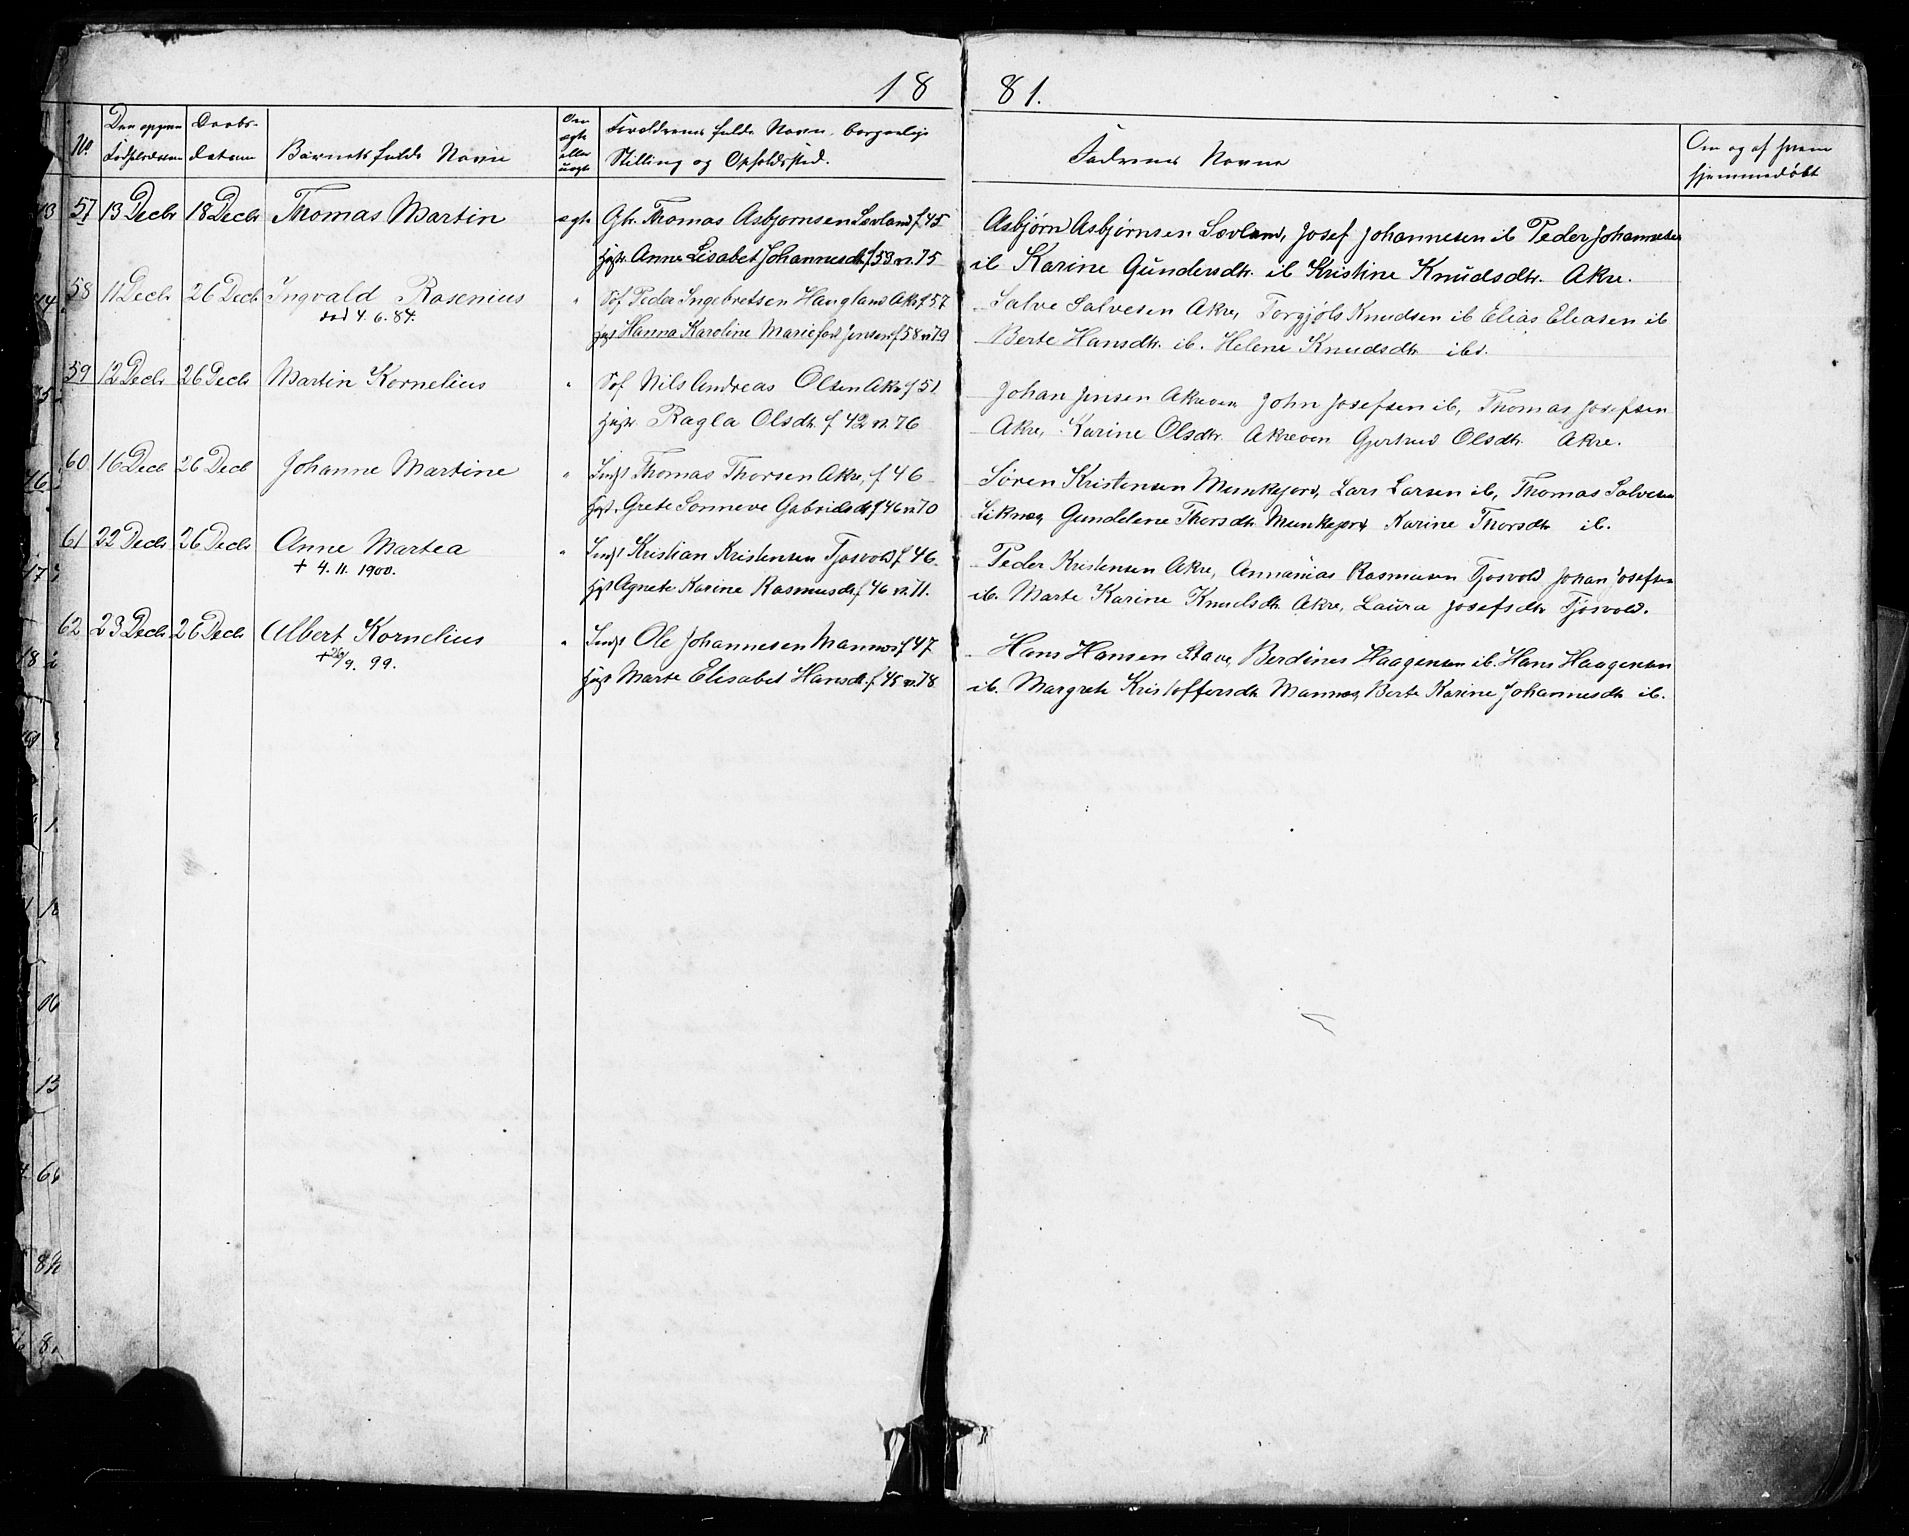 18 81.
No. Den opgivne Fødselsdatum Daabs-datum Barnets fulde Navn Om ægte eller uægte Forældrenes fulde Navn, borgerlige Stilling og Opholdssted. Fadrenes Navne Om og af hvem hjemmedøbt
57 13 Decbr 18 Decbr Thomas Martin ægte Gbr. Thomas Asbjørnsen Sævland f 45 Asbjørn Asbjørnsen Sævland, Josef Johannesen ib Peder Johannesen
Hustr. Anne Lisabet Johannesdtr f 53 v. 75 ib Karine Gundersdtr. ib Kristine Knudsdtr. Akre.
58 11 Decbr 26 Decbr Ingvald Rosenius " Søf Peder Ingebretsen Haugland Akre f 57 Salve Salvesen Akre, Torgjøls Knudsen ib Elias Eliasen ib
død 4. 6. 84. Hust Hanna Karoline Marie Jensen f 58 v 79 Berte Hansdtr. ib. Helene Knudsdtr ibd.
59 12 Decbr 26 Decbr Martin Kornelius " Søf Nils Andreas Olsen Akre f 51 Johan Jensen Akreven John Josefsen ib, Thomas Josefsen
Hustr Ragla Olsdtr f 42 v. 76 Akre, Karine Olsdtr Akreven Gjertrud Olsdtr Akre.
60 16 Decb 26 Decb Johanne Martine " Indst Thomas Thorsen Akre, f 46 Søren Kristensen Munkejord, Lars Larsen ib, Thomas Salvesen
Hust. Grete Sønneve Gabrielsdtr f 46 v. 70 Liknæs, Gundelene Thorsdtr Munkejord Karine Thorsdtr ib.
61 22 Decbr 26 Decbr Anne Martea " Indst Kristian Kristensen Tjøsvold f 46 Peder Kristensen Akre, Annanias Rasmusen Tjøsvold Johan Josefsen
+ 4. 11. 1900. Hust Agnete Karine Rasmusdtr f 46 v. 71. ib. Marte Karine Knudsdtr Akre, Laura Josefsdtr Tjøsvold.
62 23 Decbr 26 Decbr Albert Kornelius " Indst Ole Johannesen Mannes f 47 Hans Hansen Stave, Berdines Haagensen ib. Hans Haagensen
+ 26/9. 99. Hust Marte Elisabet Hansdtr f 48 v. 78 ib. Margrete Kristoffersdtr Mannes, Berte Karine Johannesdtr ib.